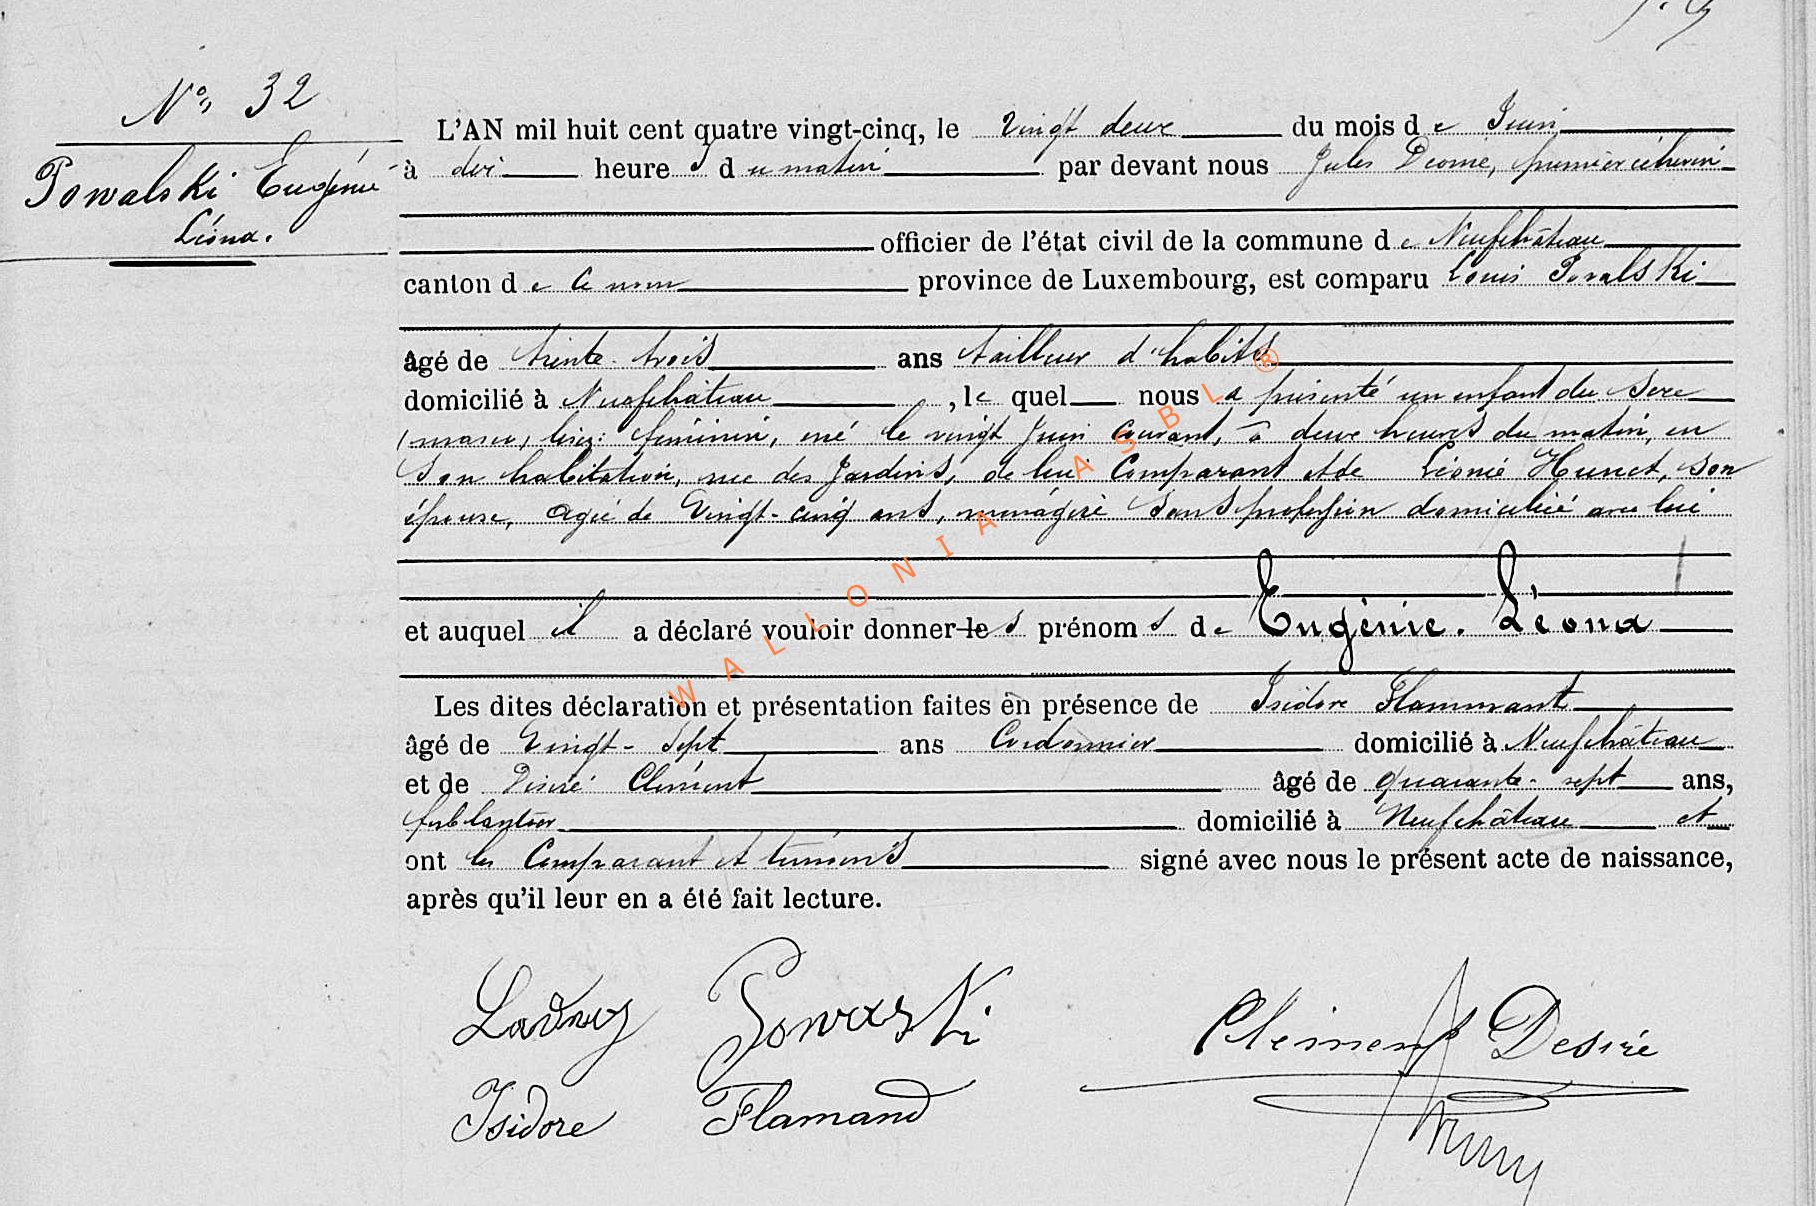 N° 32
Powalski Eugénie
Léona.
L'AN mil huit cent quatre vingt-cinq, le vingt deux du mois de Juin
à dix heures du matin par devant nous Jules premier échevin
officier de l'état civil de la commune de Neufchâteau
canton de ce nom province de Luxembourg, est comparu Louis Powalski
âgé de trente-trois ans tailleur d'habits
domicilié à Neufchâteau, lequel nous a présenté un enfant du sexe
(mascu) lisez: féminin, né le vingt Juin courant, à deux heures du matin, en
son habitation, rue des Jardins, de lui Comparant et de Léonie Hunet, son
épouse, agée de Vingt-cinq ans, ménagère sans profession domiciliée avec lui
et auquel il a déclaré vouloir donner les prénoms de Eugénie. Léona
Les dites déclaration et présentation faites en présence de Isidore Flammant
âgé de Vingt-Sept ans Cordonnier domicilié à Neufchâteau
et de Désiré Clément âgé de quarante-sept ans,
ferblantier domicilié à Neufchâteau et
ont les Comparant et témoins signé avec nous le présent acte de naissance,
après qu'il leur en a été fait lecture.
Powaski
Clement Desiré
Isidore Flamand
WALLONIA ASBL ®